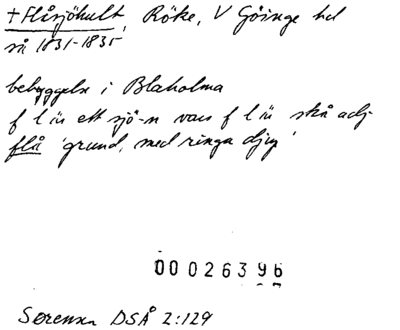 + Flåsjöhult, Röke, V Göinge hd
så 1831-1835
bebyggelse i Blaholma
f l ü ett sjö-n vars f l ü skå adj
flå 'grund, med ringa djup'
00026396
Sörensen DSÅ 2:129